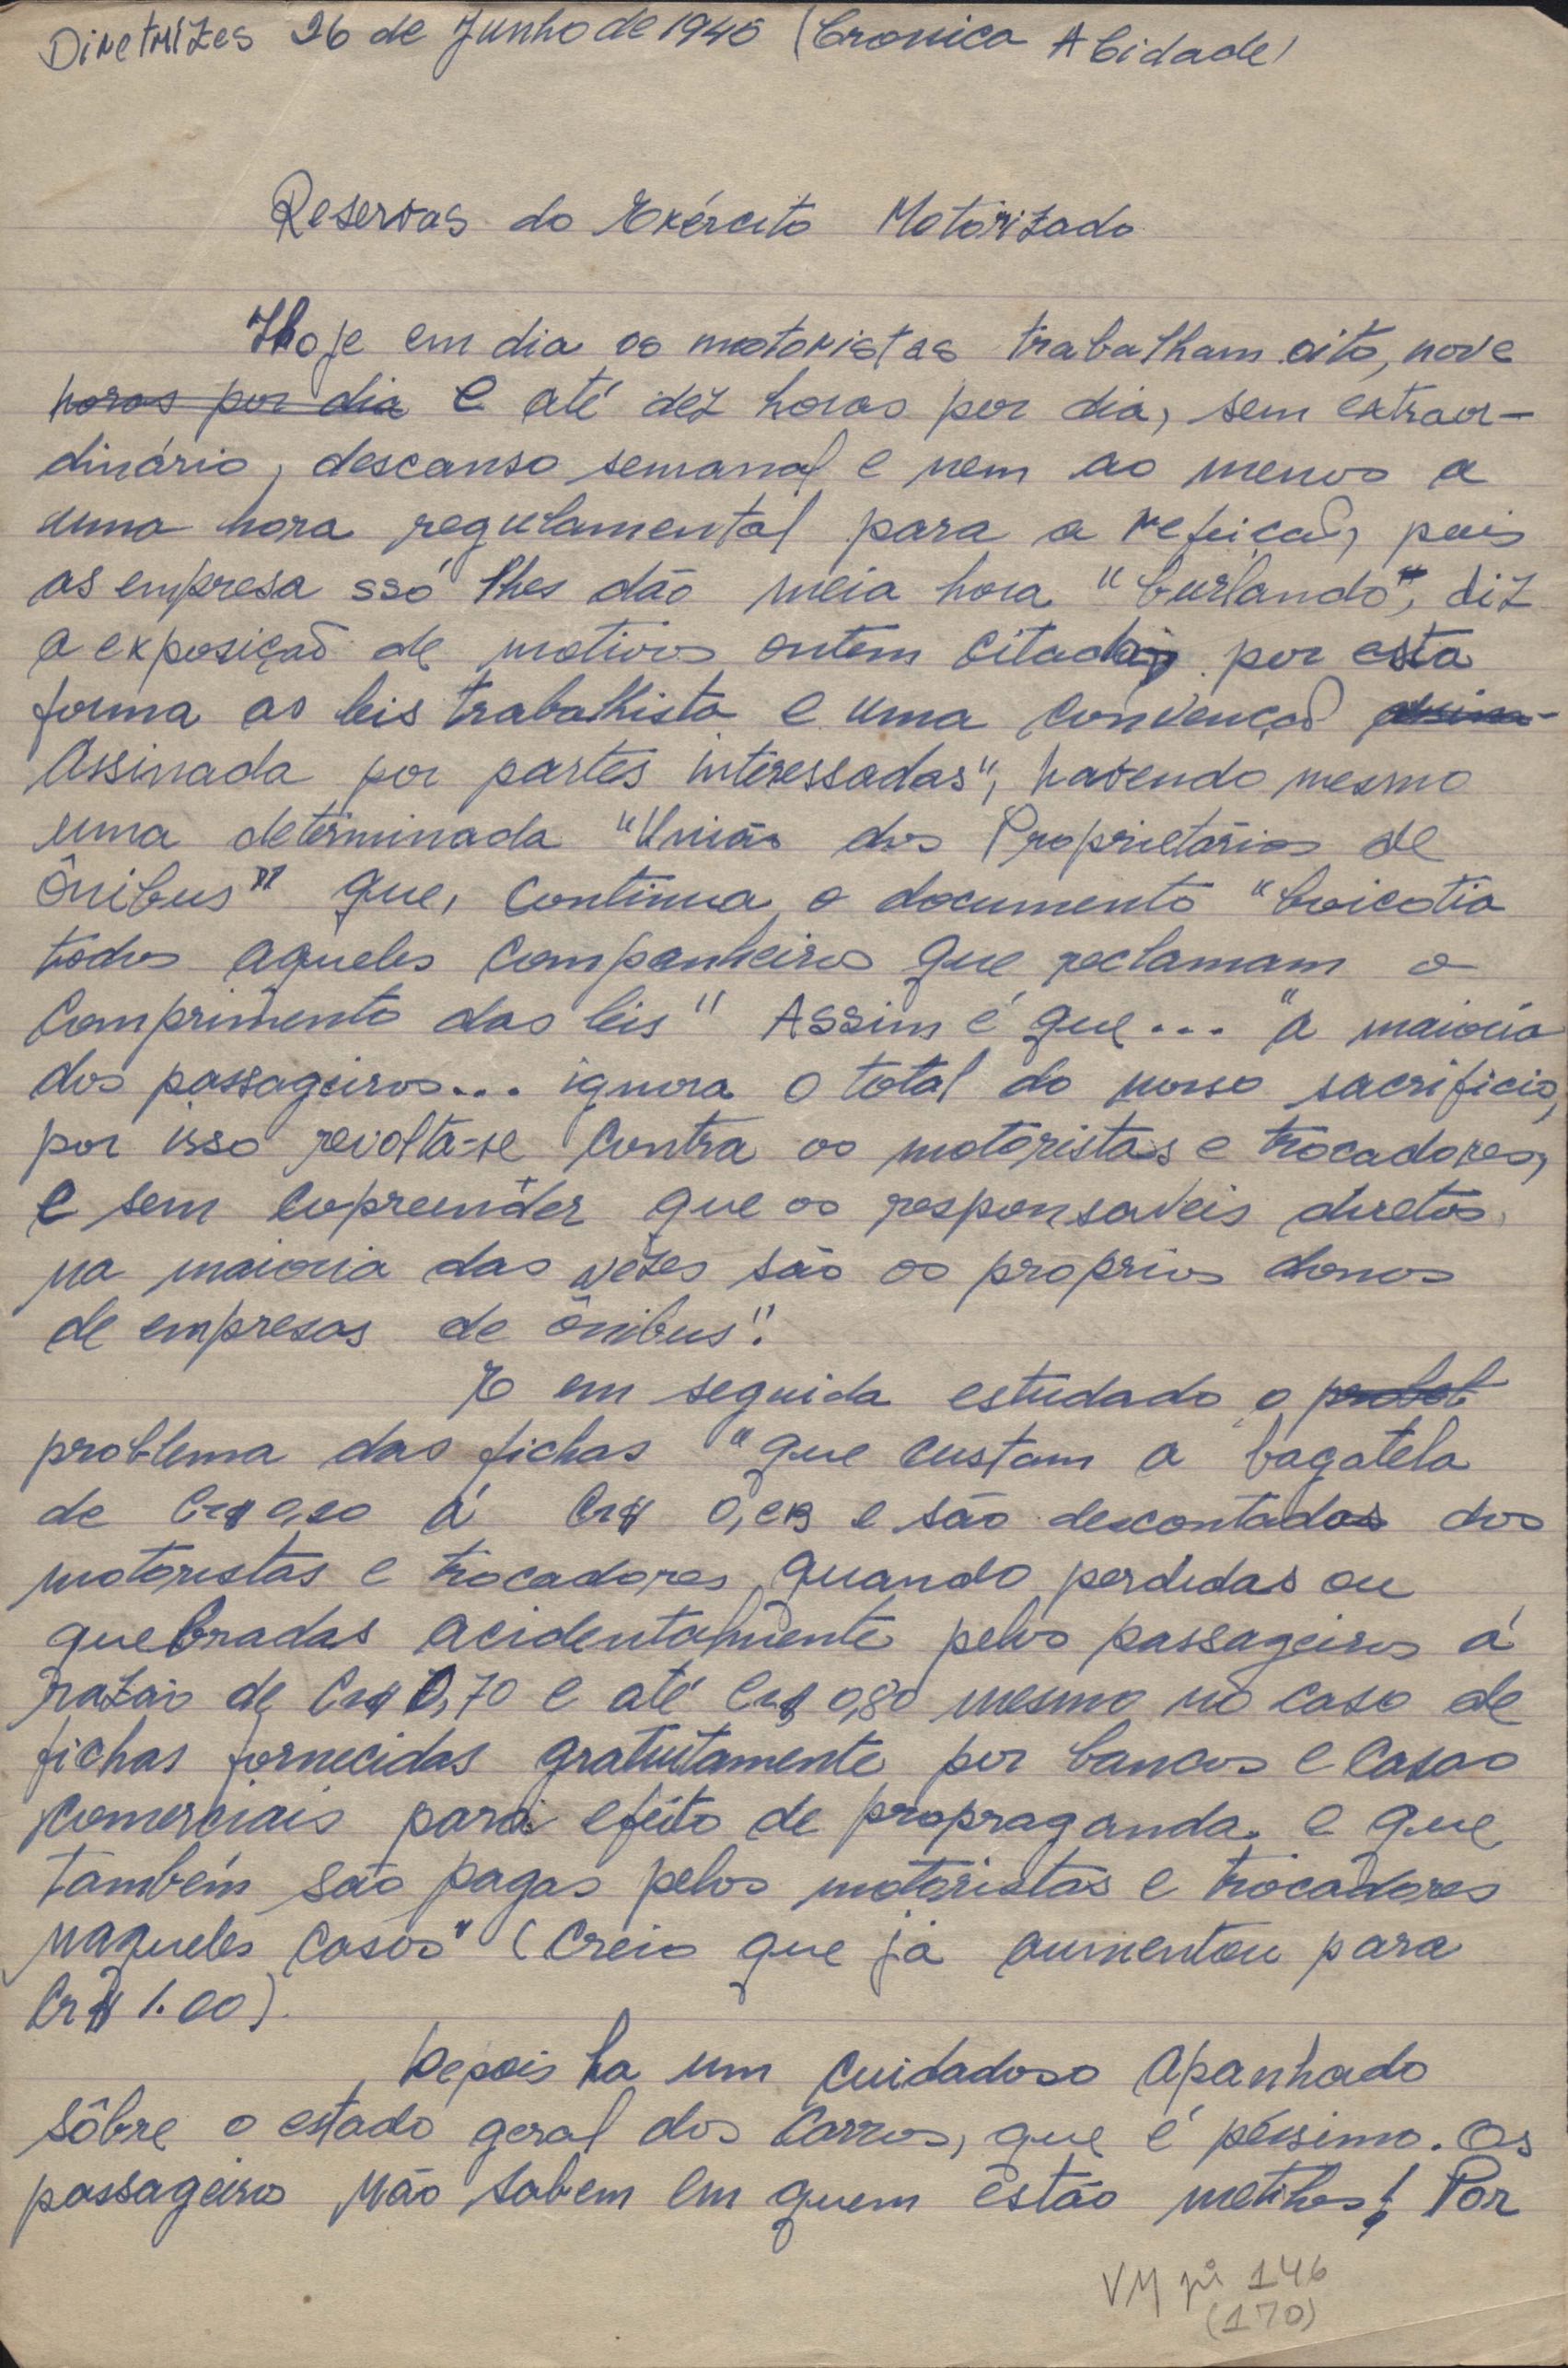 Diretrizes 26 de Junho de 1945 (Cronica A Cidade)
Reservas do Exército Motorizado
Hoje em dia os motoristas trabalham oito, nove
horas por dia e até dez horas por dia, sem extraor-
dinário, descanso semanal e nem ao menos a
uma hora regulamental para a refeição, pois
as empresa ssó lhes dão meia hora "burlando", diz
a exposição de motivos ontem citada, por esta
forma as leis trabalhista e uma convenção assina-
Assinada por partes interessadas", havendo mesmo
uma determinada "União dos Proprietários de
Ônibus" que, continua o documento "boicotia
todos aqueles companheiros que reclamam o
comprimento das leis" Assim é que... "a maioria
dos passageiros... ignora o total do nosso sacrificio,
por isso revolta-se contra os motoristas e trocadores,
e sem copreender que os responsaveis diretos,
na maioria das vêzes são os proprios donos
de empresas de ônibus".
E em seguida estudado o probel
problema das fichas "que custam a bagatela
de Cr$ 0,20 á Cr$ e são descontadas dos
motoristas e trocadores quando perdidas ou
quebradas acidentalmente pelos passageiros á
razão de Cr$ 0,70 e até Cr$ 0,80 mesmo no caso de
fichas fornecidas gratuitamente por bancos e casas
comerciais para efeito de propraganda e que
também são pagas pelos motoristas e trocadores
naqueles casos" (Creio que já aumentou para
Cr$ 1.00).
Depois ha um cuidadoso apanhado
sôbre o estado geral dos carros, que é péssimo. Os
passageiro não sabem em quem estão metihos! Por
VM pi 146
(170)